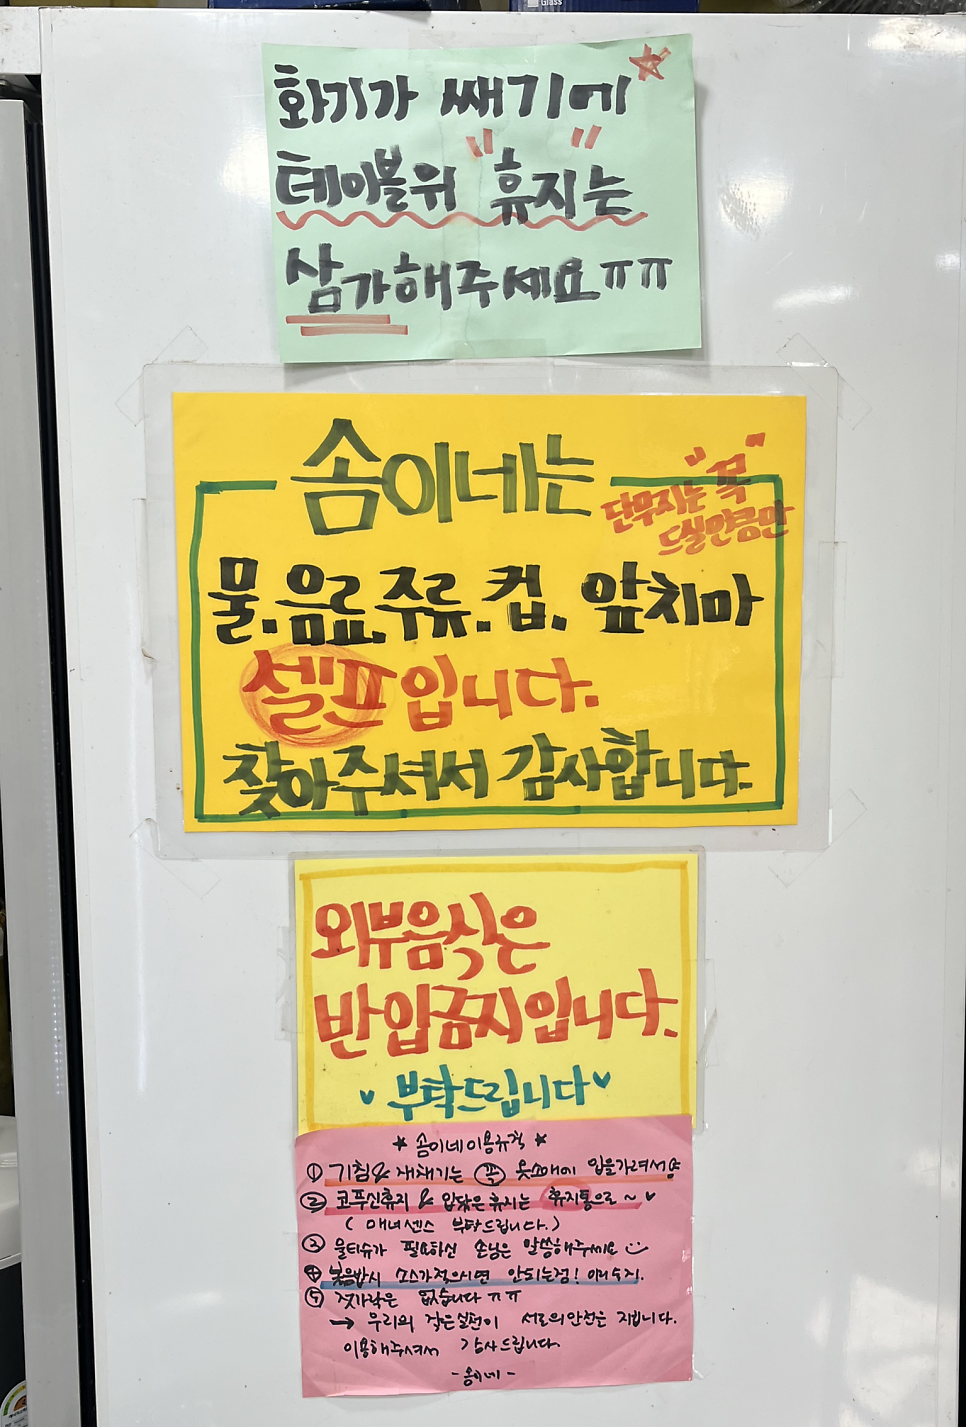 Glass
화기가 쌔기에
테이블위 "휴지"는
삼가해주세요ㅠㅠ
솜이네는
단무지는 "꼭"
드실만큼만
물.음료.주류.컵. 앞치마
셀프입니다.
찾아주셔서 감사합니다.
외부음식은
반입금지입니다.
부탁드립니다
솜이네이용규칙
① 기침& 재채기는 꼭 옷소매에 입을가려서
② 코푸신휴지 & 입닦은휴지는 휴지통으로~♥
(매너센스 부탁드립니다.)
③ 물티슈가 필요하신 손님은 말씀해주세요
④ 볶음밥시 소스가적으시면 안되는점!
⑤ 젓가락은 없습니다ㅠㅠ
→ 우리의 작은실천이 서로의안전을 지킵니다.
이용해주셔서 감사드립니다.
-솜이네-